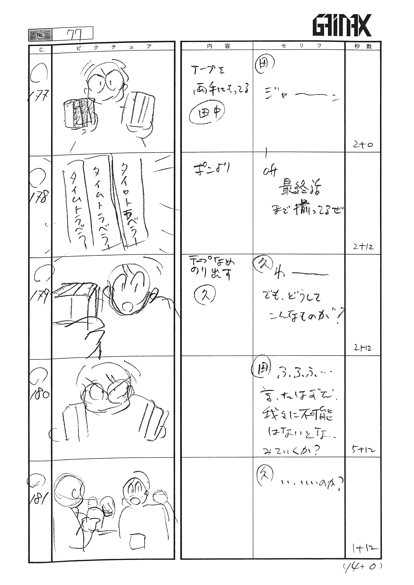 GAINAX
No. 77
C. ピクチュア 内容 セリフ 秒数
177
テープを
両手にもってる
田中
田
ジャーーン
2+0
178
タイムトラベラー
タイムトラベラー
タイムトラベラー
ポンより
off
最終話
まで揃ってるぜ
2+12
179
テープなめ
のり出す
久
久 わーー
でも、どうして
こんなものが?
2+12
180
田 ふふふ…
言ったはずだ
我々に不可能
はないとな…
みていくか?
5+12
181
久 い、いいのか?
1+12
(14+0)